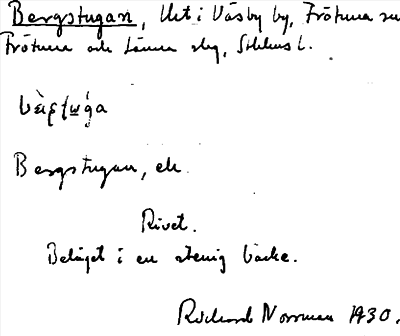 Bergstugan, Urt i Väsby by, Frötuna sn
Frötuna och Länna slg, Sthlms l.
Bergstugan, ek
Rivet.
Beläget i en stenig backe.
Richard Norrman 1930.